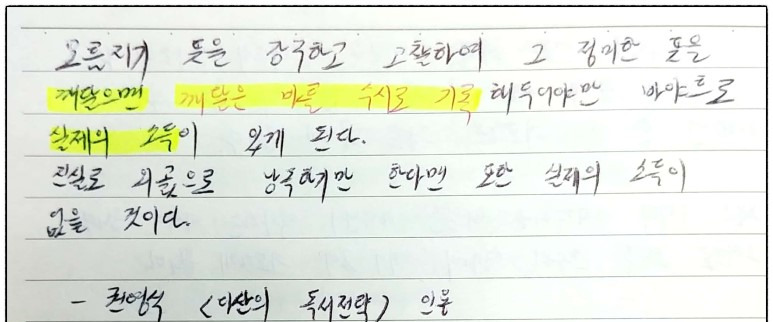 모름지기 뜻을 강구하고 고찰하여 그 정미한 뜻을
깨달으면 깨달은 바를 수시로 기록해 두어야만 바야흐로
실제의 소득이 있게 된다.
진실로 외곬으로 낭독하기만 한다면 또한 실제의 소득이
없을 것이다.
- 권영식 <다산의 독서전략> 인용